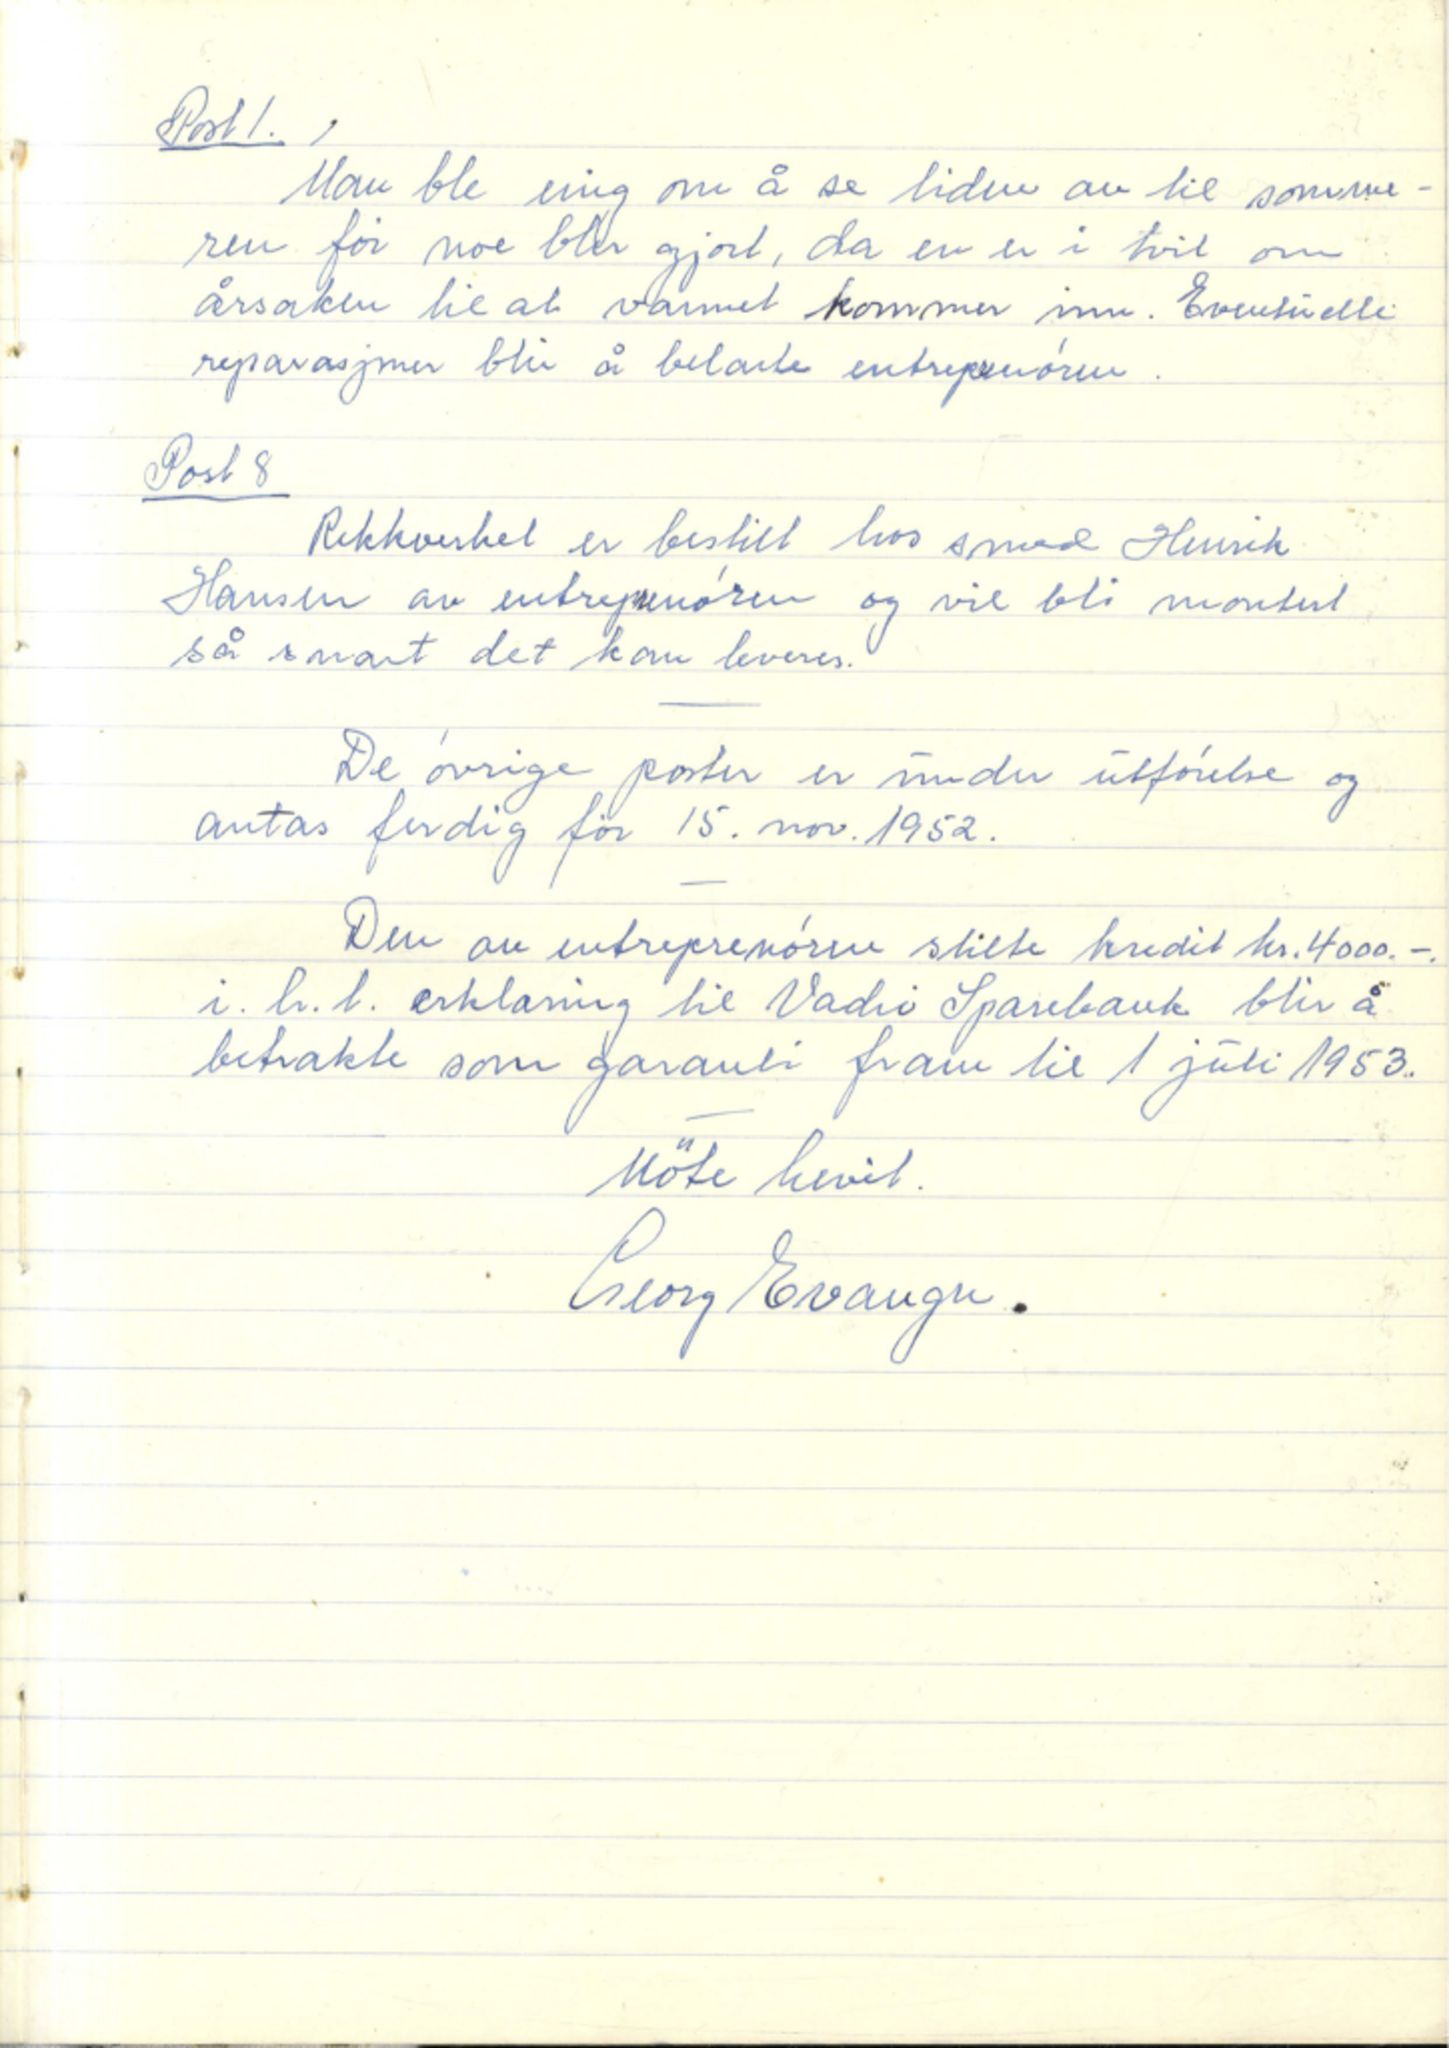 Post 1.
Man ble enig om å se tiden an til somme-
ren før noe blir gjort, da en er i tvil om
årsaken til at vannet kommer inn. Eventuelle
reparasjoner blir å belaste entreprenøren.
Post 8
Rekkverket er bestilt hos smed Henrik
Hansen av entreprenøren og vil bli montert
så snart det kan leveres.
De øvrige poster er under utførelse og
antas ferdig før 15. nov. 1952.
Den av entreprenøren stilte kredit kr. 4000.-.
i. h. t. erklæring til Vadsø Sparebank blir å
betrakte som garanti fram til 1 juli 1953.
Møte hevet.
Georg Evangr.